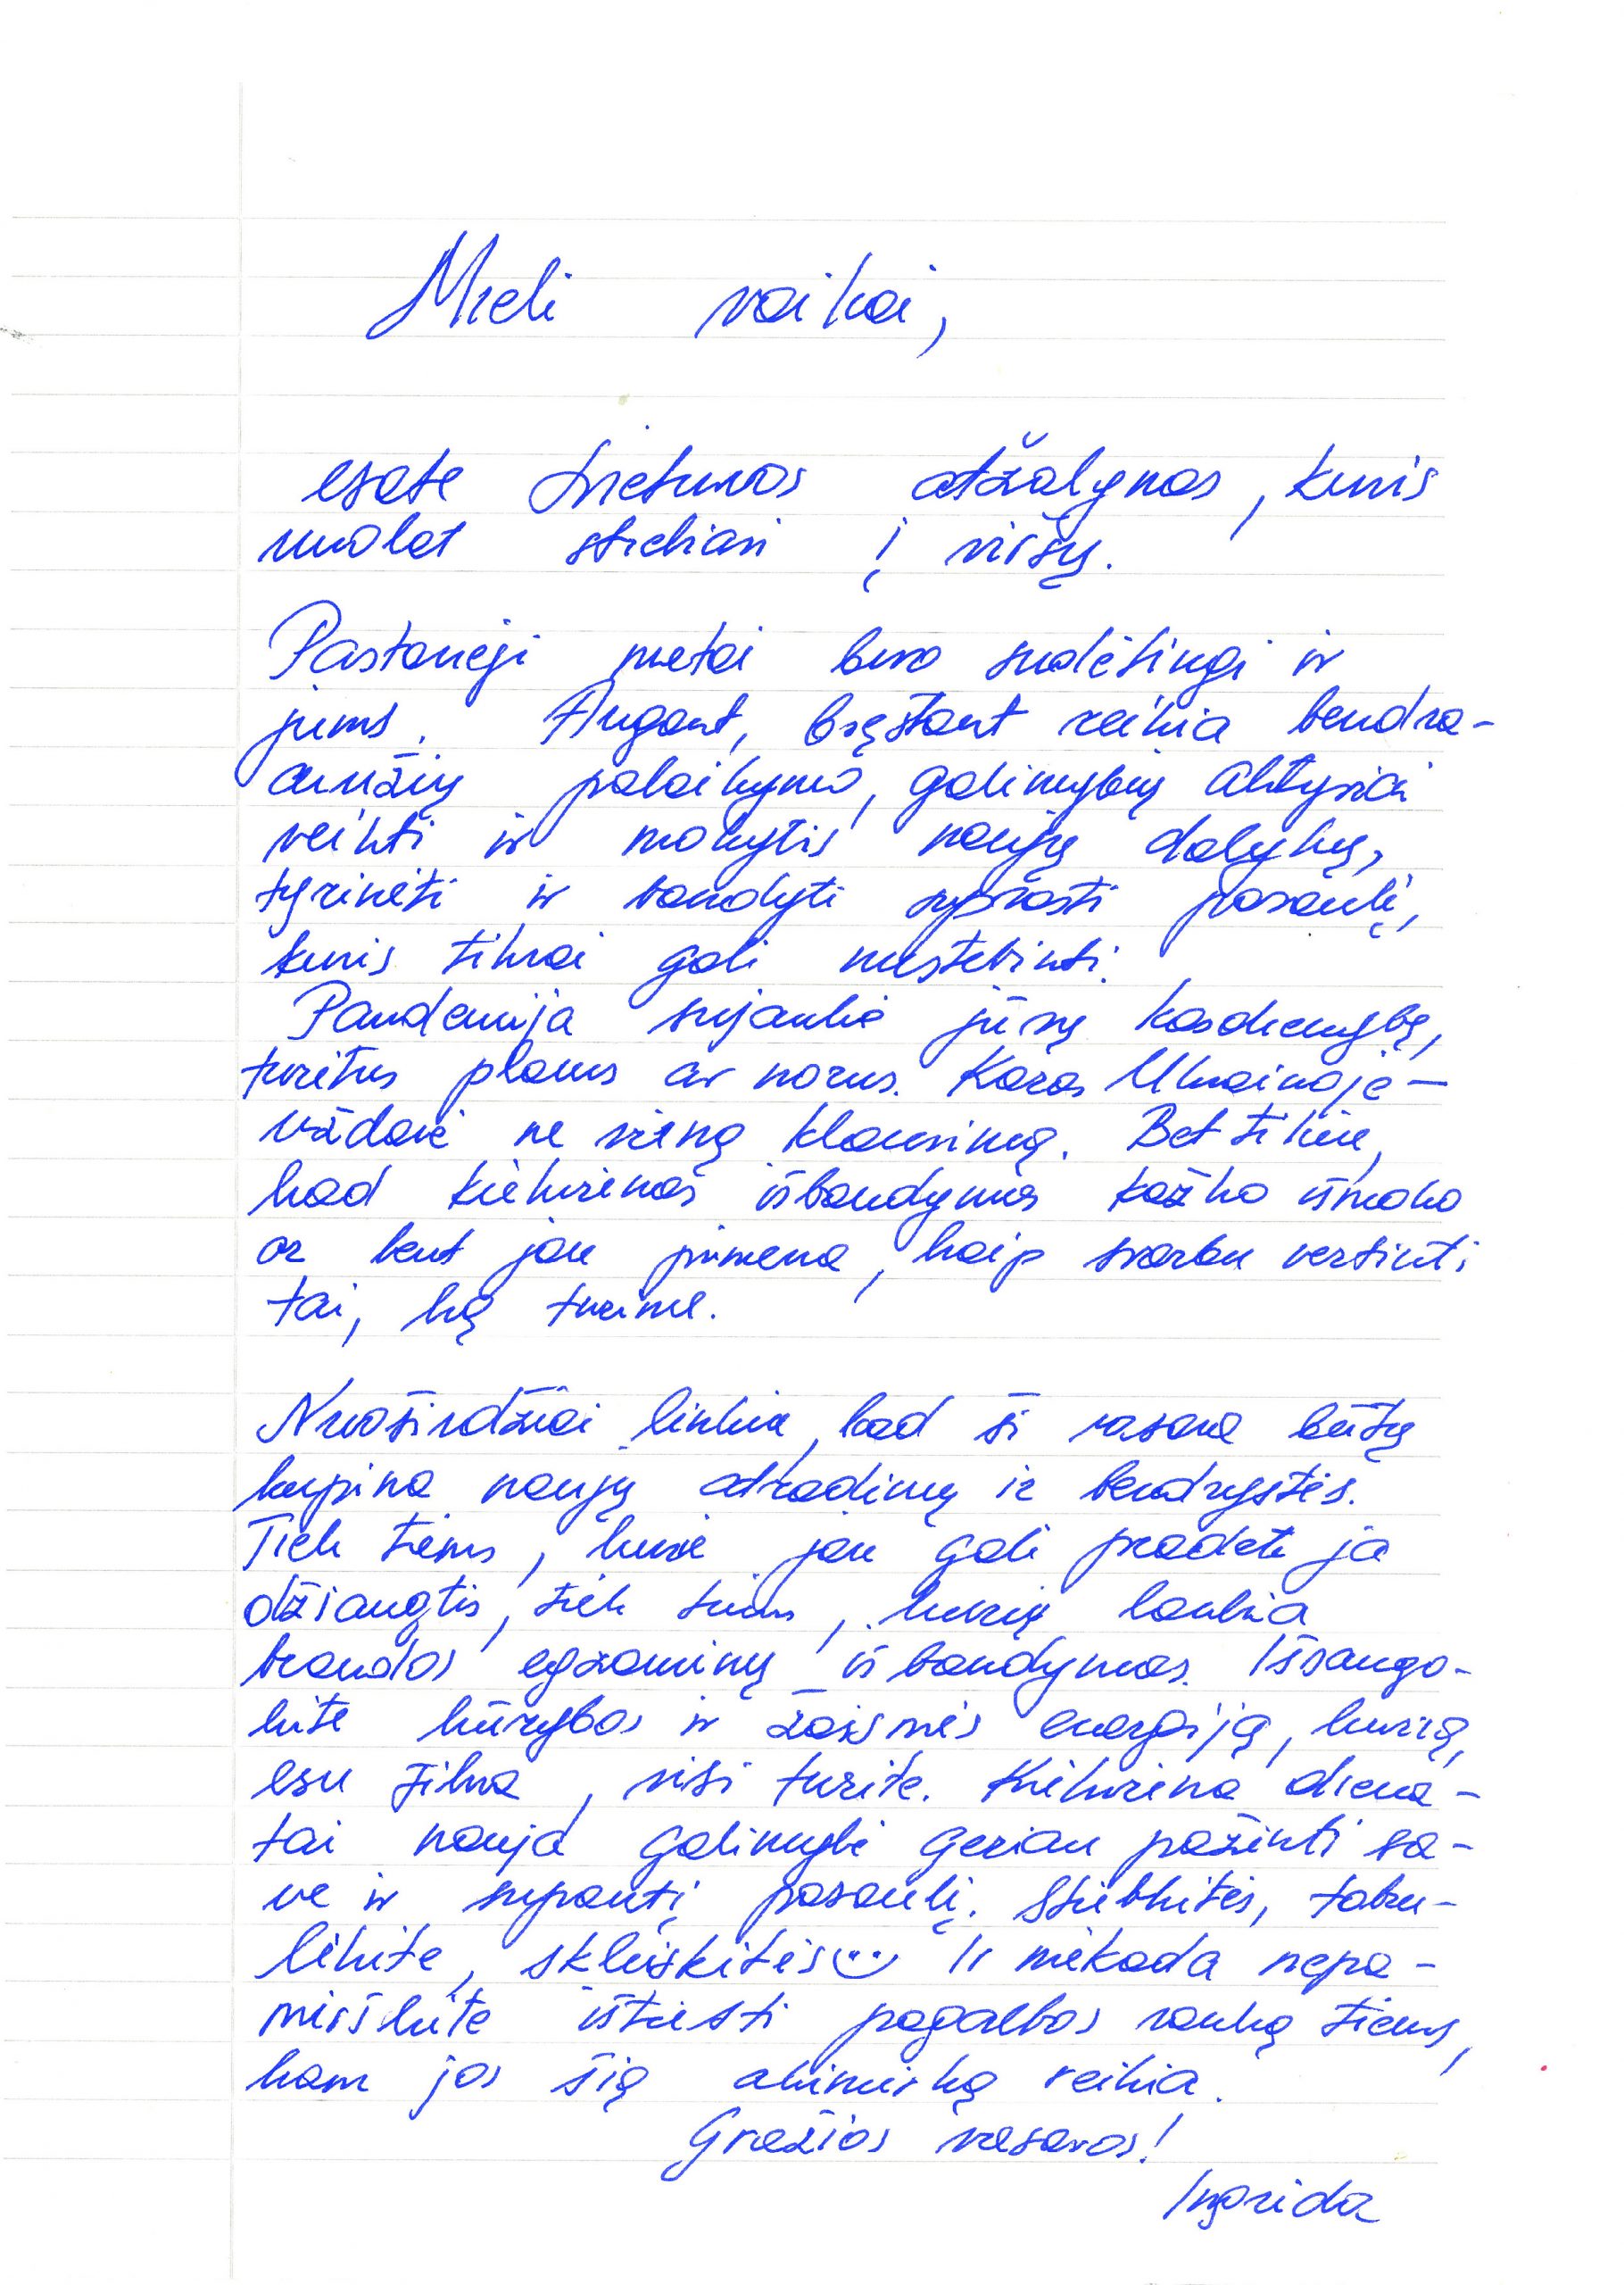 Mieli vaikai,
esate Lietuvos atžalynas, kuris
nuolat stiebiasi į viršų.
Pastarieji metai buvo sudėtingi ir
jums. Augant, bręstant reikia bendra-
amžių palaikymo, galimybių aktyviai
veikti ir mokytis naujų dalykų,
tyrinėti ir bandyti suprasti pasaulį,
kuris tikrai gali nustebinti.
Pandemija sujaukė jūsų kasdienybę,
turėtus planus ar norus. Karas Ukrainoje –
uždavė ne vieną klausimą. Bet tikiu,
kad kiekvienas išbandymas kažko išmoko
ar bent jau primena, kaip svarbu vertinti
tai, ką turime.
Nuoširdžiai linkiu, kad ši vasara būtų
kupina naujų atradimų ir bendrystės.
Tiek tiems, kurie jau gali pradėti ja
džiaugtis, tiek tiems, kurių laukia
brandos egzaminų išbandymas. Išsaugo-
kite kūrybos ir žaismės energiją, kurią,
esu tikra, visi turite. Kiekviena diena –
tai nauja galimybė geriau pažinti sa-
ve ir supantį pasaulį. Stiebkitės, tobu-
lėkite, skleiskitės Ir niekada nepa-
mirškite ištiesti pagalbos ranką tiems,
kam jos šią akimirką reikia.
Gražios vasaros!
Ingrida